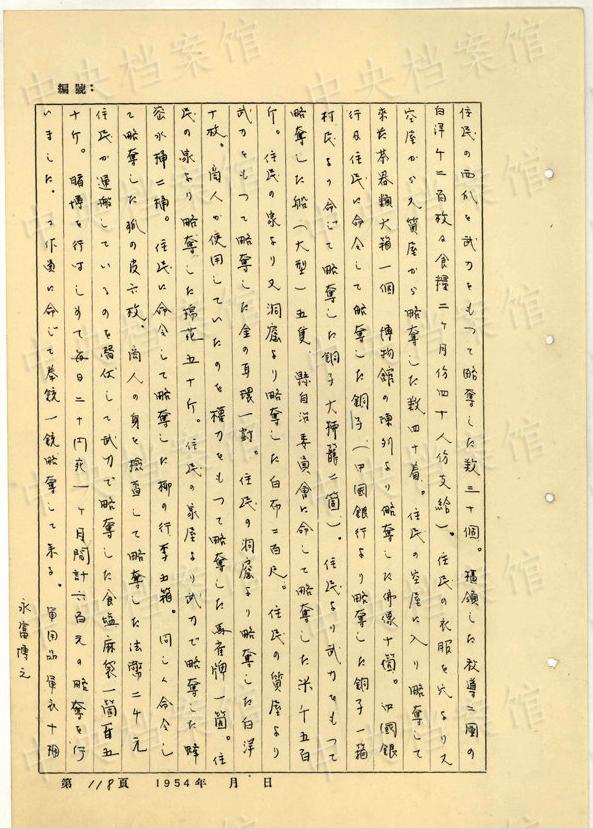 編號:
住民の西瓜を武力をもつて略奪した数三十個。橫領した教導二團の
白洋千二百枚及食糧二ヶ月份四十人份支給)。住民の衣服を穴より又
空屋から又質屋から略奪した数四十着。住民の空屋に入り略奪して
来た茶器類大箱一個 博物館の陳列より略奪した佛像十箇。中國銀
行及住民に命令して略奪した銅子(中國銀行より略奪した銅子一箱
村民より命じて略奪した銅子大掃籮二箇)。住民より武力をもつて
略奪した船(大型)五隻 縣自治委員會に命して略奪した米千五百
斤。住民の家より又洞窟より略奪した白布二百尺。住民の質屋より
武力をもつて略奪した金の耳環一対。住民の洞窟より略奪した白洋
十枚。商人が使用していたのを權力をもつて略奪した馬雀牌一箇。住
民の家より略奪した棉花五十斤。住民の家屋より武力で略奪した蜂
密水桶二桶。住民に命令して略奪した柳の行李五箱。同じく命令し
て略奪した狐の皮六枚。商人の身を檢査して略奪した法幣二千元
住民が運搬しているのを潛伏して武力で略奪した食塩麻袋一箇百五
十斤。賭博を行はしめて每日二十円宛一ヶ月間計六百元の略奪を行
いました。工作員に命じて拳銃一銃略奪して来る。軍用品軍衣十梱
永富博之
第118頁 1954年 月 日
中央档案馆